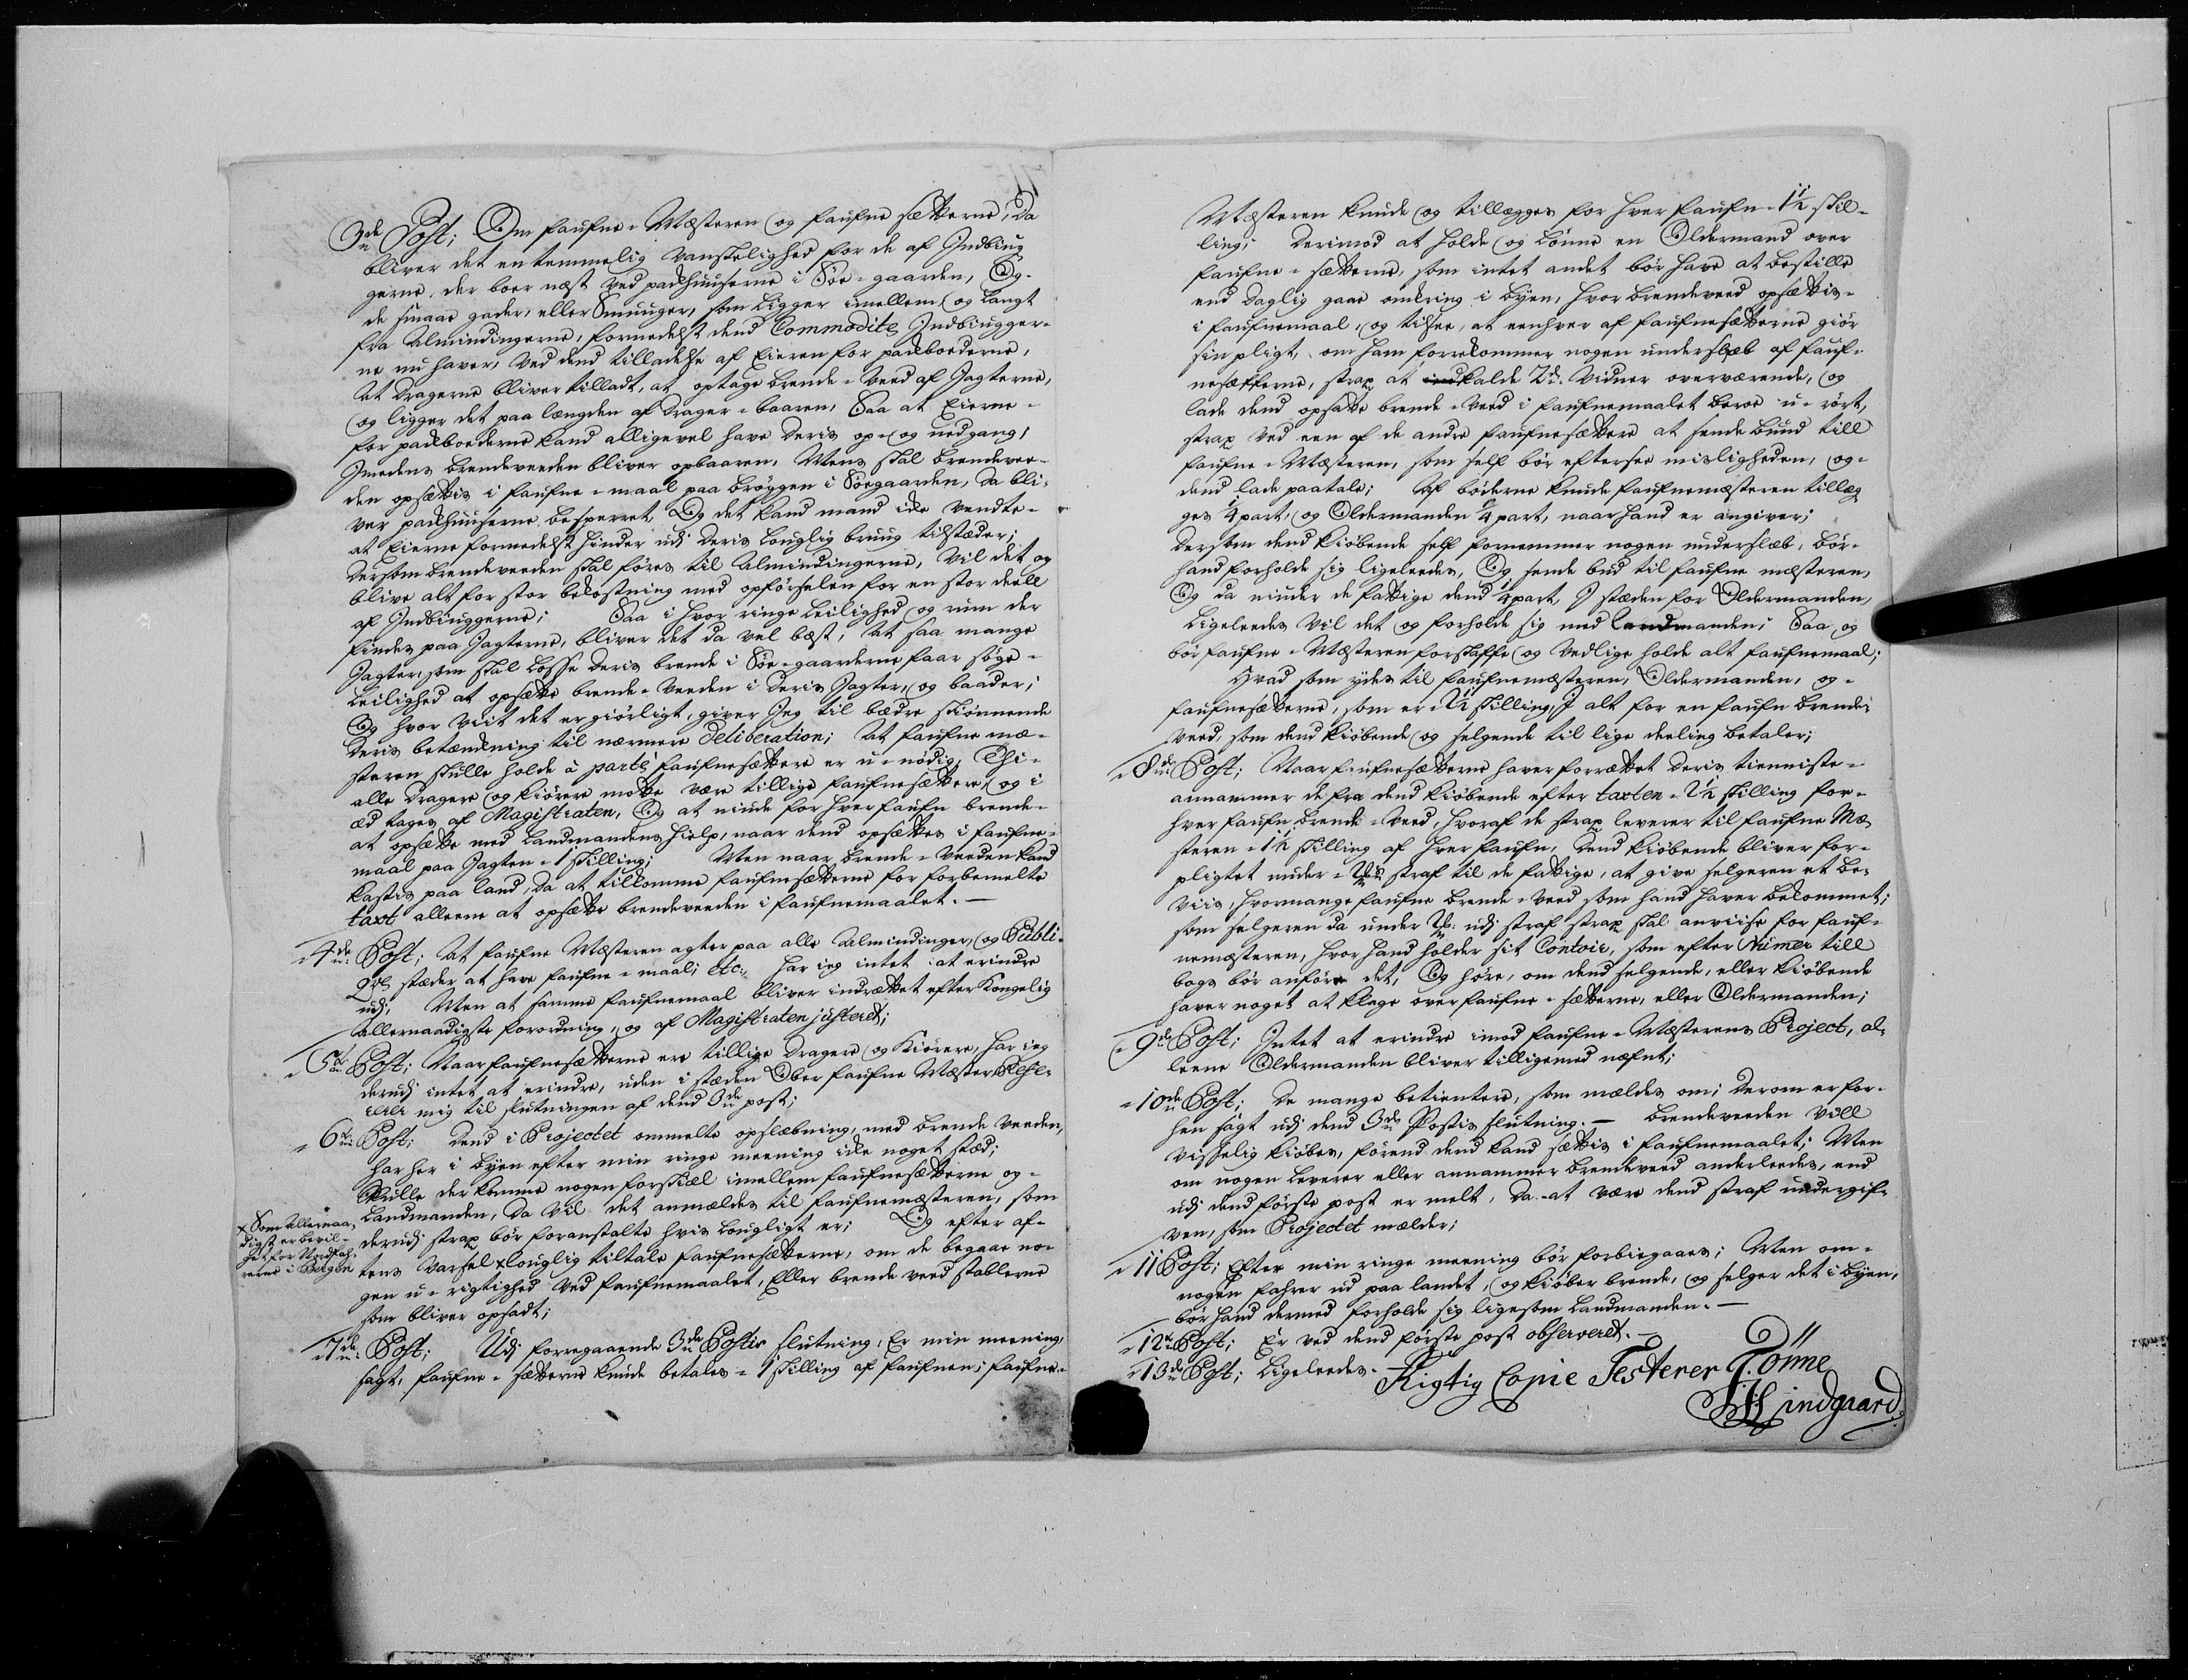 3de Post; Om faufne-Mesteren og faufne setterne, da
bliver det en temmelig vanskelighed for de af Indbiug
gerne, der boer nest ved pachuuserne i Søe-gaarden, Og
de smaae gader, eller Smuuger, som ligger imellem og langt
fra Almindingerne, formedelst dend Commodite, Indbiugger-
ne nu haver, ved dend tilladelse af Eieren for packboederne,
at dragerne bliver tilladt, at optage brende-veed af Jagterne,
og ligger det paa lengden af drager-baaren, Saa at Eierne
for packboederne kand alligevel have deris op- og nedgang,
Imedens brendeveeden bliver opbaaren, Mens skal brendevee-
den opsettis i faufne-maal paa bryggen i Søegaarden, da bli-
ver packhuuserne besperret, Og det kand mand icke vendte
at Eierne formedelst hinder udj deris louglig bruug tilsteder;
dersom brendeveeden skal føres til Almindingerne, vil det og
blive alt for stor bekostning med opførselen for en stor deell
af Indbiuggerne; Saa i hvor ringe leilighed og rum der
findes paa Jagterne, bliver det da vel best, at saa mange
Jagter, som skal losse deris brende i Søe-gaarderne faar søge
leilighed at opsette brende-veeden i deris Jagter, og baader;
Og hvor viit det er giørligt, giver Jeg til bedre skiønnende
deris betenckning til nermere deliberation; At faufne me-
steren skulle holde à parte faufnesettere er u-nødig, Thi
alle dragere og kiørere motte være tillige faufnesettere, og i
æd tages af Magistraten, Og at niude for hver faufn brende-
at opsette med Landmandens hielp, naar dend opsettes i faufne-
maal paa Jagten 1 skilling; Men naar brende-veeden kand
kastis paa land, da at tilkomme faufnesetterne for forbemelte
taxt alleene at opsette brendeveeden i faufnemaalet.
4de Post; At faufne Mesteren agter paa alle Almindinger, og Publi-
qve steder at have faufne-maal; etc: har ieg intet at erindre
udj, Men at samme faufnemaal bliver indrettet efter Kongelig
allernaadigste forordning, og af Magistraten justeret;
5te Post; Naar faufnesetterne ere tillige dragere og Kiørere, har ieg
derudj intet at erindre, uden i steden Ober faufne Mester Refe-
rerer mig til slutningen af dend 3de post;
6te Post; dend i Projectet ommelte opslebning, med brende veeden,
har her i byen efter min ringe meening icke noget sted;
Skulle der komme nogen forskiæl imellem faufnesetterne og
Landmanden, da vil det anmeldes til faufnemesteren, som
derudj strax bør foranstalte hvis lougligt er; Og efter af-
tens varsel x louglig tiltale faufnesetterne, om de begaar no-
gen u-rigtighed ved faufnemaalet, Eller brende veed stablerne
som bliver opsadt;
x Som Allernaa-
digst er bevil-
get for Nordfah-
rerne i Bergen
7de Post; Udj forregaaende 3de Postis slutning, Er min meening,
sagt, faufne-setterne kunde betales 1 skilling af faufnen; faufne-
Mesteren kunde og tillegges for hver faufn 1½ skil-
ling; derimod at holde og lønne en Oldermand over
faufne-setterne, som intet andet bør have at bestille
end daglig gaae omkring i byen, hvor brendeveed opsettis
i faufnemaal, og tilsee, at eenhver af faufnesetterne giør
sin pligt, om ham forrekommer nogen underslæb af fauf-
nesetterne, strax at indkalde 2de vidner overværende, og
lade dend opsatte brende-veed i faufnemaalet beroe u-rørt,
strax ved een af de andre faufnesettere at sende bund till
faufne-Mesteren, som self bør eftersee misligheden, og
dend lade paatale; Af bøderne kunde faufnemesteren tilleg
ges ¼ part, og Oldermanden ¼ part, naar hand er angiver;
dersom dend kiøbende self fornemmer nogen underslæb, bør
hand forholde sig ligeleedes, Og sende bud til faufne mesteren,
Og da niuder de fattige dend ¼ part, I steden for Oldermanden,
ligeleedes vil det og forholde sig med landmanden; Saa og
bør faufne-Mesteren forskaffe og vedlige holde alt faufnemaal;
Hvad som ydes til faufnemesteren, Oldermanden, og
faufnesetterne, som er 2½ skilling, I alt for en faufn brende
veed, som dend kiøbende og selgende til lige deeling betaler;
8de Post; Naar faufnesetterne haver forrettet deris tienniste
annammer de fra dend kiøbende efter taxten 2½ skilling for
hver faufn brende-veed, hvoraf de strax leverer til faufne Me-
steren 1½ skilling af hver faufn, dend kiøbende bliver for-
pligtet under straf til de fattige, at give selgeren et be-
viis, hvormange faufne brende-veed som hand haver bekommet;
som selgeren da under udj straf strax skal anviise for fauf-
nemesteren, hvor hand holder sit Contoir, som efter Numer till
bogs bør anføre det, Og høre, om dend selgende, eller kiøbende
haver noget at klage over faufne-setterne, eller Oldermanden;
9de Post; Intet at erindre imod faufne-Mesterens Project, al-
leene Oldermanden bliver tilligemed nefnt;
10de Post; de mange betientere, som meldes om; derom er for-
hen sagt udj dend 3de Postis slutning. — brendeveeden vill
visselig kiøbes, førend dend kand settis i faufnemaalet; Men
om nogen leverer eller annammer brendeveed anderleedes, end
udj dend første post er melt, da at være dend straf undergif-
ven, som Projectet melder;
11 Post; Efter min ringe meening bør forbiegaaes; Men om
nogen fahrer ud paa landet, og kiøber brende, og selger det i byen,
bør hand dermed forholde sig ligesom Landmanden.
12te Post; Er ved dend første post observeret.
13de Post; Ligeleedes. — Rigtig Copie Testerer T. Tønne
Lindgaard